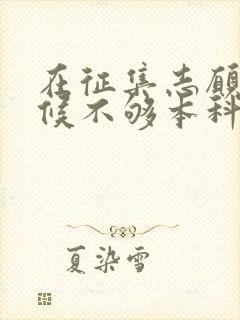 在征集志愿
候不够本科
夏染雪